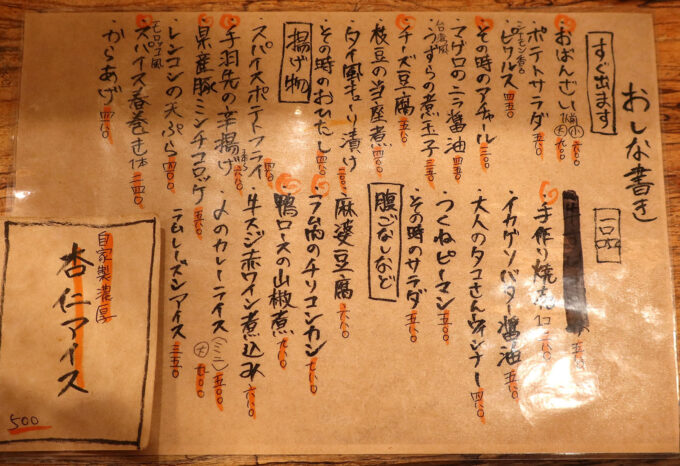 おしな書き
すぐ出ます
おばんざい 小 六〇〇 大 九〇〇
ポテトサラダ 五〇〇
シナモン香る
ピクルス 四五〇
その時のアチャール 三〇〇
マグロのニラ醤油 四五〇
台湾風
うずらの煮玉子 三五〇
チーズ豆腐 五〇〇
枝豆の当座煮 四〇〇
タイ風きゅーり漬け
その時のおひたし 四五〇
揚げ物
スパイスポテトフライ
手羽先の辛揚げ
県産豚ミンチコロッケ 五〇〇
レンコンの天ぷら 四〇〇
モロッコ風
スパイス春巻き 1本 三四〇
からあげ 四八〇
一品
手作り焼売 1コ
イカゲソバター醤油 五八〇
大人のタコさんウインナー 四八〇
つくねピーマン 五八〇
その時のサラダ
腹ごなしなど
麻婆豆腐 六八〇
ラム肉のチリコンカン 七八〇
鴨ロースの山椒煮 九八〇
牛スジ赤ワイン煮込み 六八〇
〆のカレーライス (ミニ) 五〇〇 大 九〇〇
ラムレーズンアイス 三五〇
自家製濃厚
杏仁アイス
500